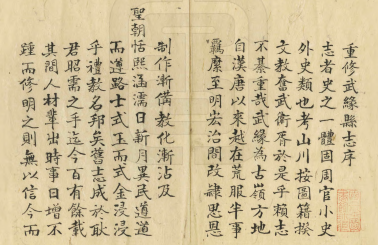 重修武緣縣志序
志者史之一體國周官小史
外史類也考山川按圖籍揆
文教奮武衛胥於是乎賴志
不綦重哉武緣為古嶺方地
自漢唐以來越在荒服半事
羈縻至明宏治間改肆思恩
制作漸備教化漸訖及
聖朝恬熙涵濡日新月異武道道
而遵路士式玉而式金浸浸
乎禮教名邦矣舊志成於耿
君昭需之手迄今百有餘載
其間人材輩出時事日增不
踵而修明之則無以信今而